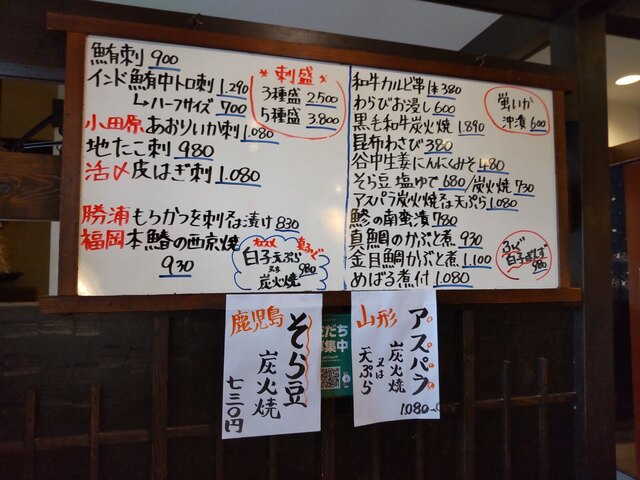 鮪刺 900
インド鮪中トロ刺 1.290
↳ハーフサイズ 700
小田原あおりいか刺 1.080
地たこ刺 980
活〆皮はぎ刺 1.080
勝浦もちかつを刺又は漬け 830
福岡本鰆の西京焼
930
*刺盛*
3種盛 2.500
5種盛 3.800
白子天ぷら
又は
炭火焼
980
和牛カルビ串 1本380
わらびお浸し 600
黒毛和牛炭火焼 1.890
昆布わさび 380
谷中生姜にんにくみそ 480
そら豆 塩ゆで 680/炭火焼 730
アスパラ炭火焼又は天ぷら 1.080
鯵の南蛮漬 780
真鯛のかぶと煮 930
金目鯛かぶと煮 1.100
めばる煮付 1.080
蛍いか
沖漬 600
ふぐ
白子ぽんず
980
鹿児島
そら豆
炭火焼
七三〇円
友だち
募集中
山形
アスパラ
炭火焼
又は
天ぷら
1.080-